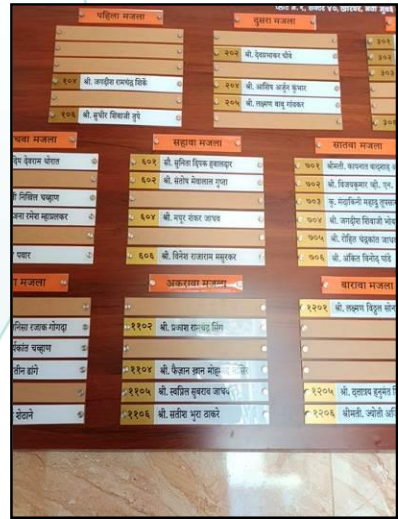 प्लॉट नं. ९, सेक्टर ४०, खारघर, नवी मुंबई
पहिला मजला
१०४ श्री. जगदीश रामचंद्र शिर्के
१०६ श्री. सुधीर शिवाजी तुपे
दुसरा मजला
२०२ श्री. देवप्रभाकर चौबे
२०४ श्री. आशिष अर्जुन कुंभार
२०५ श्री. लक्ष्मण बाबु गांवकर
३०१
३०२
३०३
चवा मजला
देवराम थोरात
निखिल चव्हाण
रमेश म्हाप्रलकर
पवार
सहावा मजला
६०१ श्री. सुनिता दिपक हवालदार
६०२ श्री. संतोष मेवालाल गुप्ता
६०४ श्री. मयूर शंकर जाधव
६०६ श्री. विनेश राजाराम मसुरकर
सातवा मजला
७०१ श्रीमती. कायनात
७०२ श्री. विजयकुमार व्ही. एन.
७०३ कु. मंदाकिनी महादु
७०४ श्री. जगदीश शिवाजी
७०५ श्री. रोहित चंद्रकांत जाधव
७०६ श्री. अंकित विनोद पांडे
मजला
रजाक गोगदा
चव्हाण
डांगे
शेठाने
अकरावा मजला
११०२ श्री. प्रकाश रामचंद्र सिंग
११०४ श्री. फैज़ान खान
११०५ श्री. स्वप्निल सुबराव जाधव
११०६ श्री. सतीश भुरा ठाकरे
बारावा मजला
१२०१ श्री. लक्ष्मण विठ्ठल सोन
१२०५ श्री. दत्तात्रय हनुमंत
१२०६ श्रीमती. ज्योती